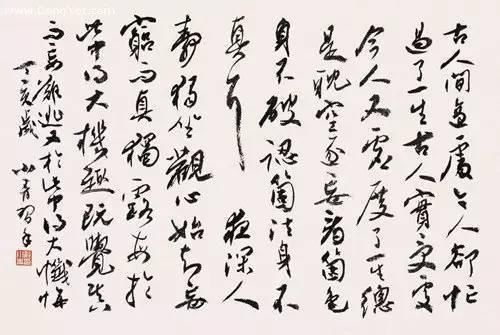 古人閒適處今人卻忙
過了一生古人實受處
今人又虛度了一生總
是耽空逐妄看箇色
身不破認箇法身不
真耳 夜深人
靜獨坐觀心始知妄
窮而真獨露每於
此中得大機趣既覺真
而妄難逃又於此中得大懺悔
丁亥歲